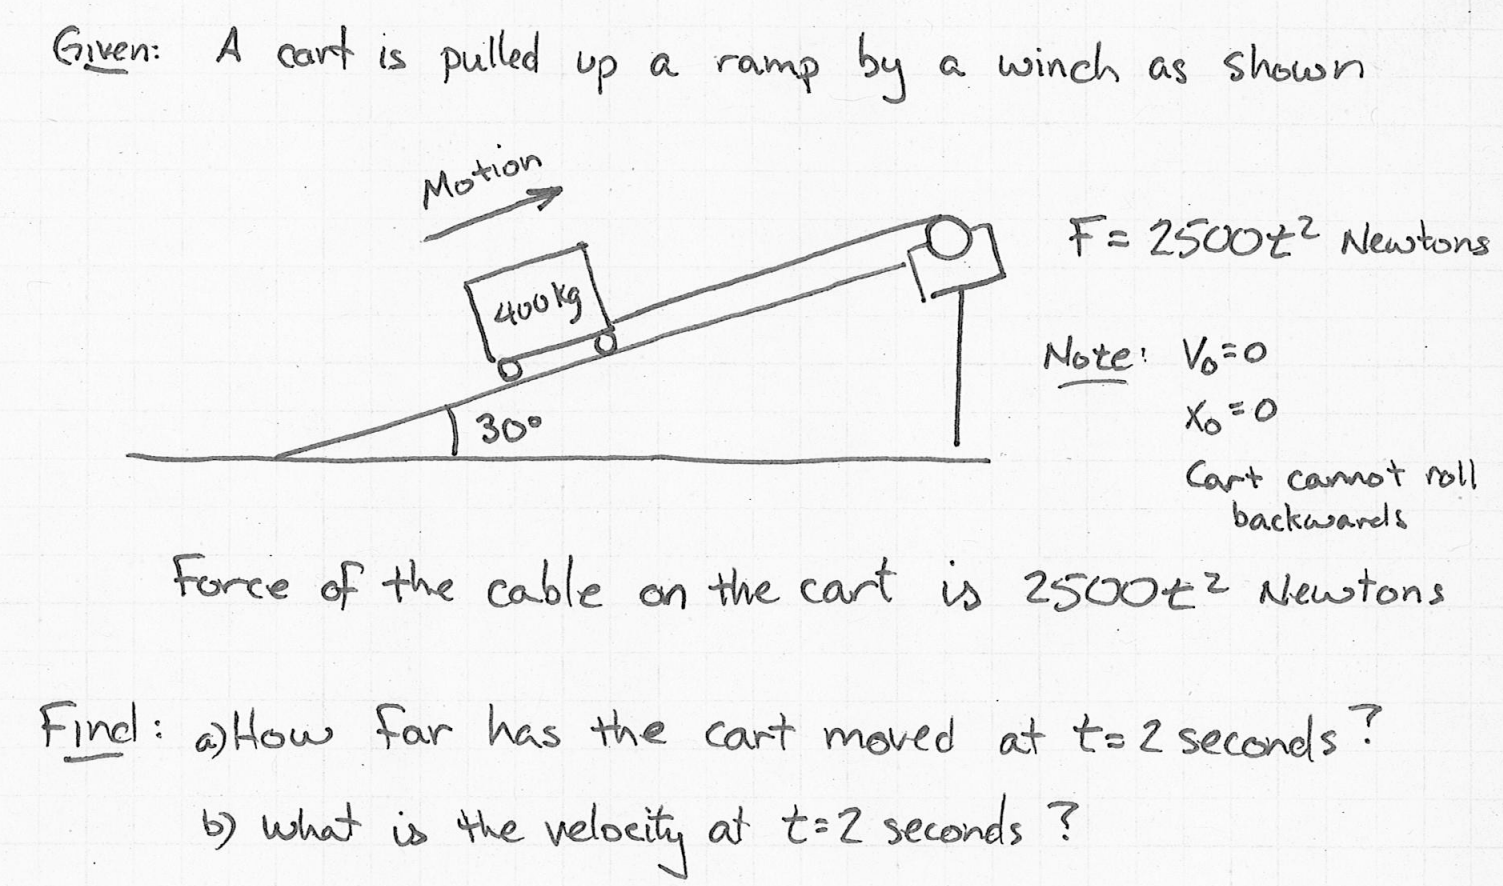 Given: A cart is pulled up a ramp by a winch as shown
Motion
400kg
30°
F = 2500t² Newtons
Note: V₀=0
X₀=0
Cart cannot roll
backwards
Force of the cable on the cart is 2500t² Newtons
Find: a) How far has the cart moved at t=2 seconds?
b) what is the velocity at t=2 seconds?